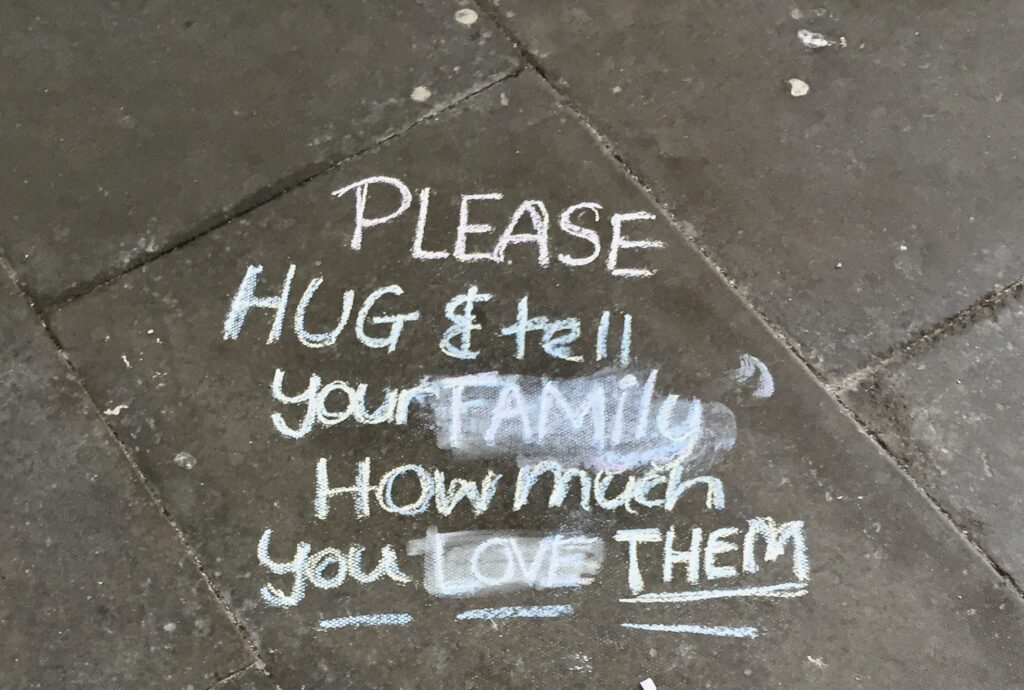 PLEASE
HUG & tell
your FAMily
HOW much
you LOVE THEM